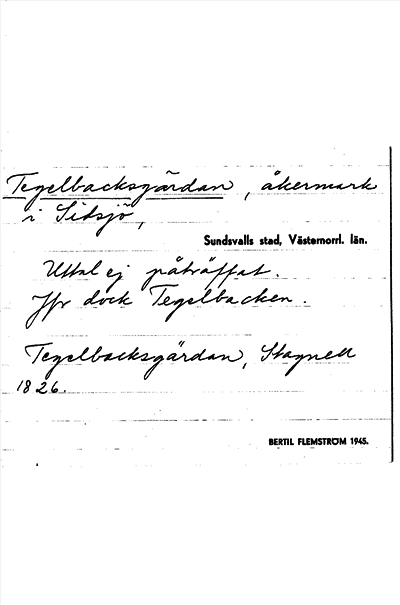 Tegelbacksgärdan, åkermark
i Sidsjö,
Sundsvalls stad, Västernorrl. län.
Uttal ej påträffat.
Jfr dock Tegelbacken.
Tegelbacksgärdan, Stagnell
1826.
BERTIL FLEMSTRÖM 1945.